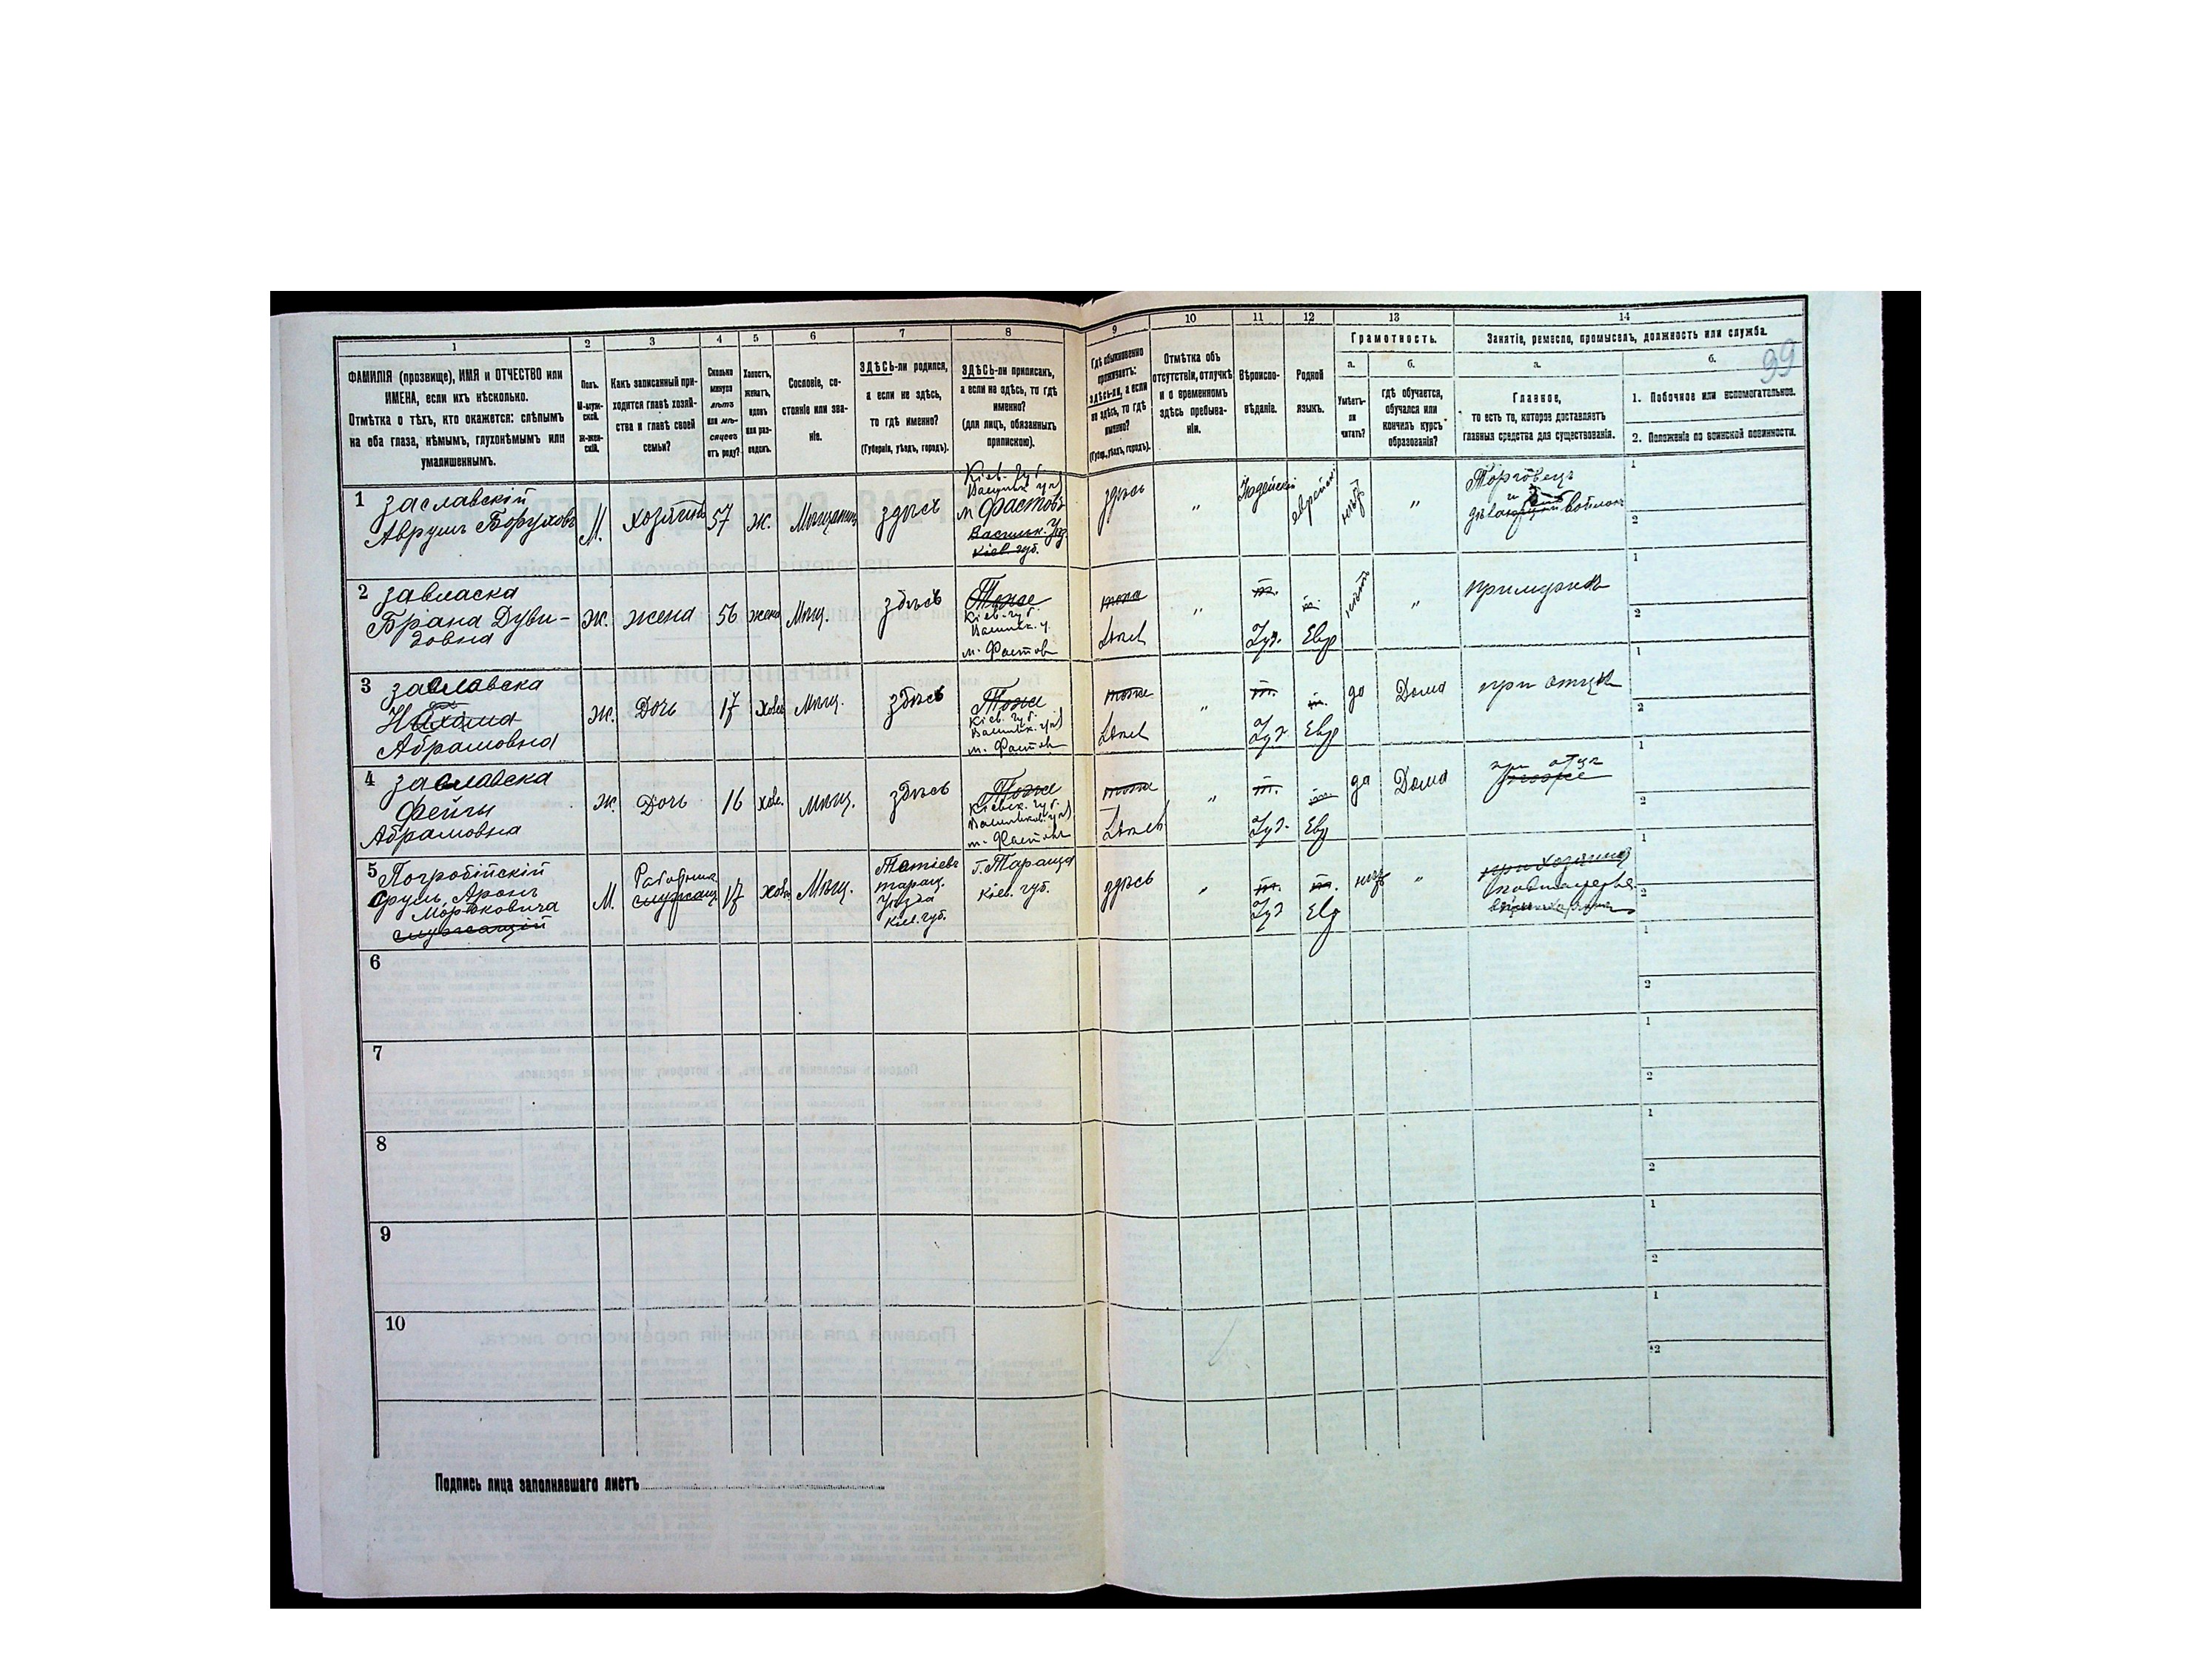 1 2 3 4 5 6 7 8 9 10 11 12 13 14
ФАМИЛІЯ (прозвище), ИМЯ и ОТЧЕСТВО или
ИМЕНА, если ихъ нѣсколько.
Отмѣтка о тѣхъ, кто окажется: слѣпымъ
на оба глаза, нѣмымъ, глухонѣмымъ или
умалишеннымъ.
Полъ.
М-муж-
ской.
Ж-жен-
скій.
Какъ записанный при-
ходится главѣ хозяй-
ства и главѣ своей
семьи?
Сколько
минуло
лѣтъ
или мѣ-
сяцевъ
отъ роду?
Холостъ,
женатъ,
вдовъ
или раз-
веденъ.
Сословіе, со-
стояніе или зва-
ніе.
ЗДѢСЬ-ли родился,
а если не здѣсь,
то гдѣ именно?
(Губернія, уѣздъ, городъ).
ЗДѢСЬ-ли приписанъ,
а если не здѣсь, то гдѣ
именно?
(для лицъ, обязанныхъ
припискою).
Гдѣ обыкновенно
проживаетъ:
здѣсь-ли, а если
не здѣсь, то гдѣ
именно?
(Губер., уѣздъ, городъ).
Отмѣтка объ
отсутствіи, отлучкѣ
и о временномъ
здѣсь пребыва-
ніи.
Вѣроиспо-
вѣданіе.
Родной
языкъ.
Грамотность.
а.
Умѣетъ-
ли
читать?
б.
гдѣ обучается,
обучался или
кончилъ курсъ
образованія?
Занятіе, ремесло, промыселъ, должность или служба.
а.
Главное,
то есть то, которое доставляетъ
главныя средства для существованія.
б.
99
1. Побочное или вспомогательное.
2. Положеніе по воинской повинности.
1 Заславскій
Аврумъ Боруховъ
М.
хозяинъ
57
ж.
Мѣщанинъ
здѣсь
Кіев. Губ.
м Фастовъ
Васильк. Уѣзд
Кіев. губ.
здѣсь
"
Іюдейскій
еврейскій
нѣтъ
"
Торговецъ
1
2
2 Завласка
Брана Дуви-
довна
Ж.
жена
56
Мѣщ.
здѣсь
Тоже
Кіев. Губ.
м. Фастов
тоже
"
т.
Іуд.
Евр
нѣтъ
"
при мужѣ
1
2
3 Заславска
Абрамовна
Ж.
Дочь
17
Мѣщ.
здѣсь
Тоже
Кіев. Губ.
м. Фастов
тоже
"
т.
Іуд
Евр
да
Дома
при отцѣ
1
2
4 Заславска
Фейгы
Абрамовна
Ж.
Дочь
16
Мѣщ.
здѣсь
Тоже
Кіевск. Губ.
м. Фастовъ
тоже
"
т.
Іуд.
Евр
да
Дома
при отцѣ
тоже
1
2
5 Погребійскій
Срулъ, Аронъ
Мордковича
служащій
М.
Работникъ
служащ.
17
Мѣщ.
Тетіевъ
таращ.
уѣзда
Кіев. губ.
г. Тараща
Кіев. губ.
здѣсь
"
т.
Іуд
Евр
нѣтъ
"
при хозяинѣ
1
2
6
1
2
7
1
2
8
1
2
9
1
2
10
1
2
Подпись лица заполнявшаго листъ